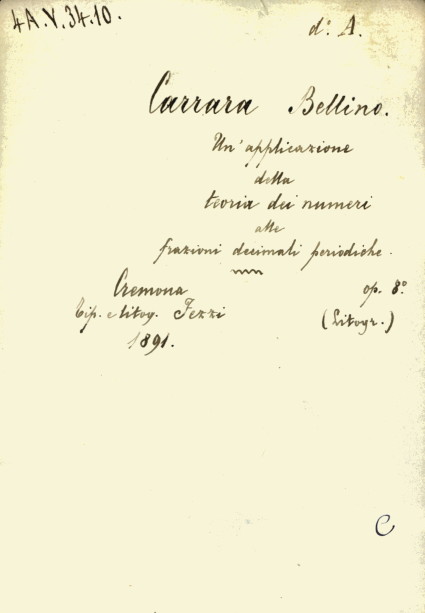 4A.V.34.10.
d.º A.
Carrara Bellino.
Un' applicazione
della
teoria dei numeri
alle
frazioni decimali periodiche.
Cremona op. 8.º
Tip. e litog. Fezzi (Litogr.)
1891.
C